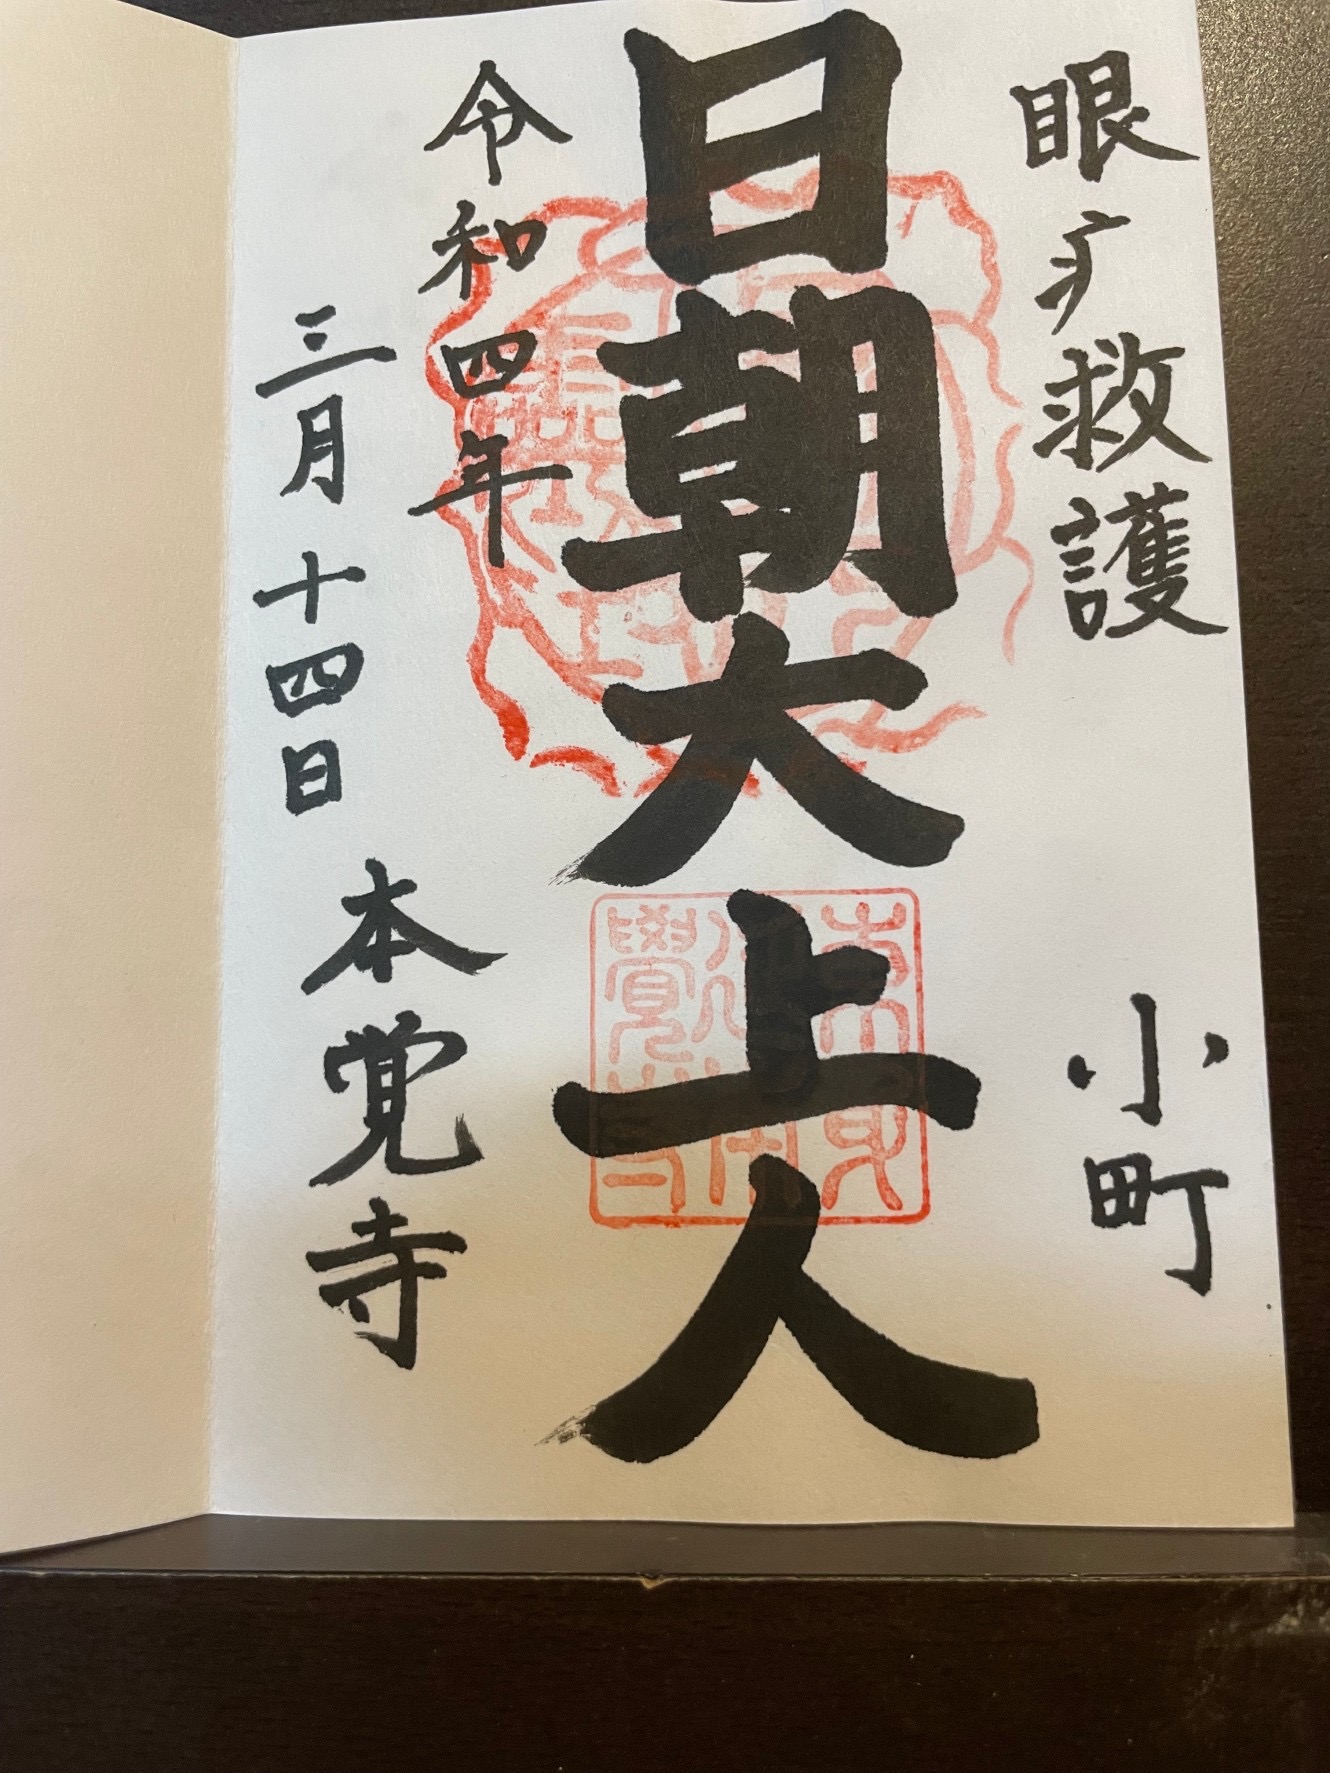 眼疒救護
小町
日朝大上人
令和四年
三月十四日
本覚寺